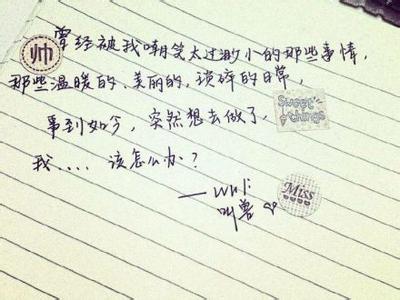 帅
曾经被我嘲笑太过渺小的那些事情,
那些温暖的、美丽的,琐碎的日常,
事到如今,突然想去做了,
Sweet things
我....该怎么办?
—Whli
Miss
叫兽